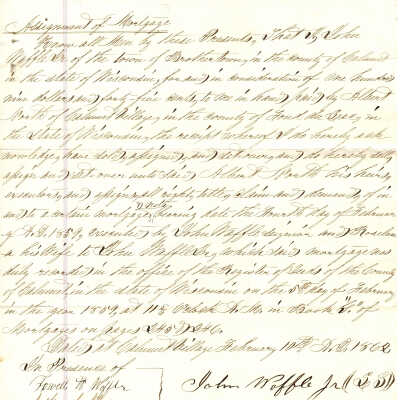 Assignment of Mortgage
Know all Men by these Presents, That I, John
Waffle Jr of the town of Brothertown, in the county of Calumet
in the state of Wisconsin, for and in consideration of one hundred
nine dollars and forty five cents, to me in hand paid by Albert
North of Calumet Village, in the county of Fond du Lac, in
the State of Wisconsin, the receipt whereof I do hereby ack
nowledge, have sold, assigned, and set over, and do hereby sell,
assign and set over unto said Albert North his heirs,
executors, and assigns all right, title, claim and demand, of in
and to a certain mortgage bearing date the fourth day of February
A.D. 1859, executed by John Waffle and
his Wife to John Waffle Jr, which said mortgage was
duly recorded in the office of the Register of Deeds of the County
of Calumet in the state of Wisconsin on the 5th day of February
in the year 1859, at o'clock M. in Book of
Mortgages on pages 245 246.
Dated at Calumet Village February 10th A.D. 1862
In Presence of
Waffle
John Waffle Jr